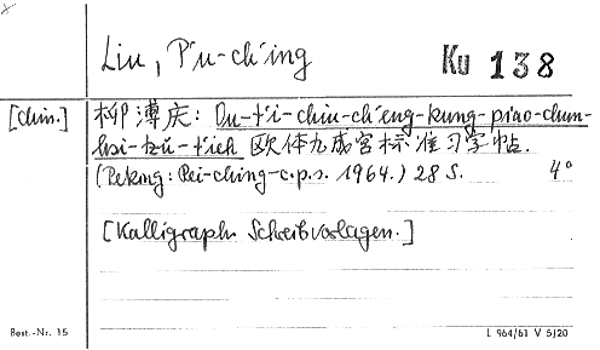 Liu, P'u-ch'ing
Ku 138
[Chin.]
柳溥庆: Ou-t'i-chiu-ch'eng-kung-piao-chun-
hsi-tzŭ-t'ieh 欧体九成宫标准习字帖.
(Peking: Pei-ching-c.p.s. 1964.) 28 S. 4°
[Kalligraph. Schreibvorlagen.]
Best.-Nr. 15
L 964/61 V 5/20